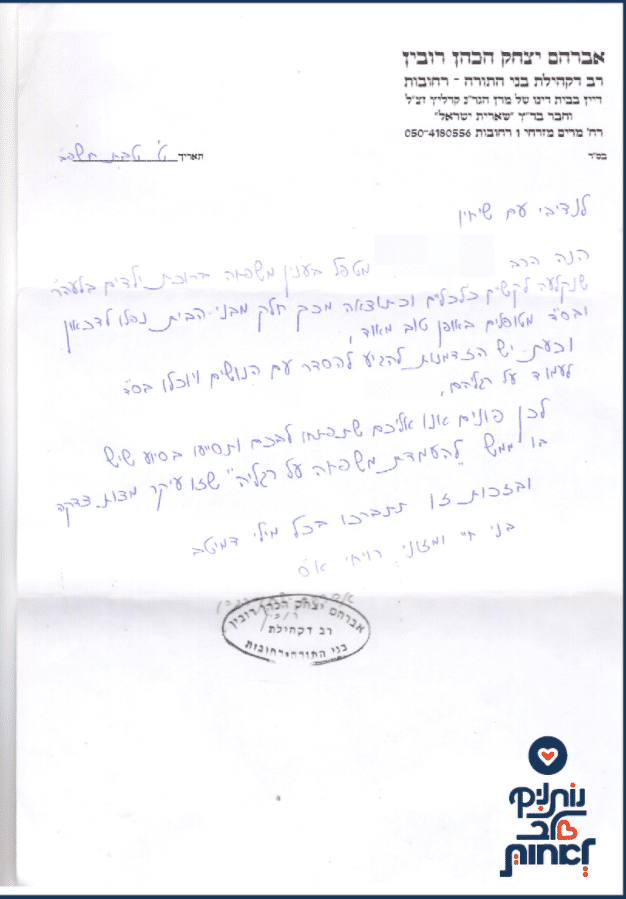 אברהם יצחק הכהן רובין
רב דקהילת בני התורה - רחובות
דיין בבית דינו של מרן הגר"נ קרליץ זצ"ל
וחבר בד"ץ "שארית ישראל"
רח' מרים מזרחי 1 רחובות 050-4180556
בס"ד
תאריך ט' טבת תשפ"ב
לנדיבי עם שיחיו
הנה הרב מטפל בענין משפחה ברוכת ילדים בלעה"ר
שנקלעה לקשיים כלכליים וכתוצאה מכך חלק מבני הבית נפלו לדכאון
ובס"ד מטופלים באופן טוב מאוד,
וכעת יש הזדמנות להגיע להסדר עם הנושים ויוכלו בס"ד
לעמוד על רגליהם.
לכן פונים אנו אליכם שתפתחו לבכם ותסייעו בסיוע שיש
בו ממש "להעמדת משפחה על רגליה" שזו עיקר מצות צדקה
ובזכות זו תתברכו בכל מילי דמיטב
בני חיי ומזוני רויחי אכ"ס
אברהם יצחק הכהן רובין
רב דקהילת
בני התורה רחובות
נותנים
לב
לאחות